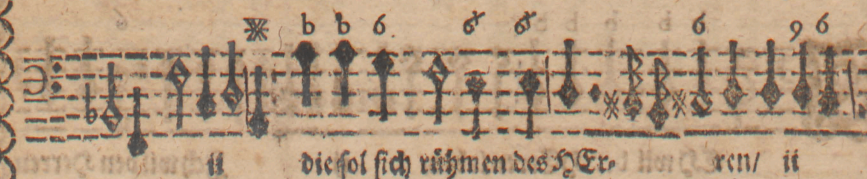 b b 6 6 6 6 9 6
ii die sol sich rühmen des HEr- ren/ ii